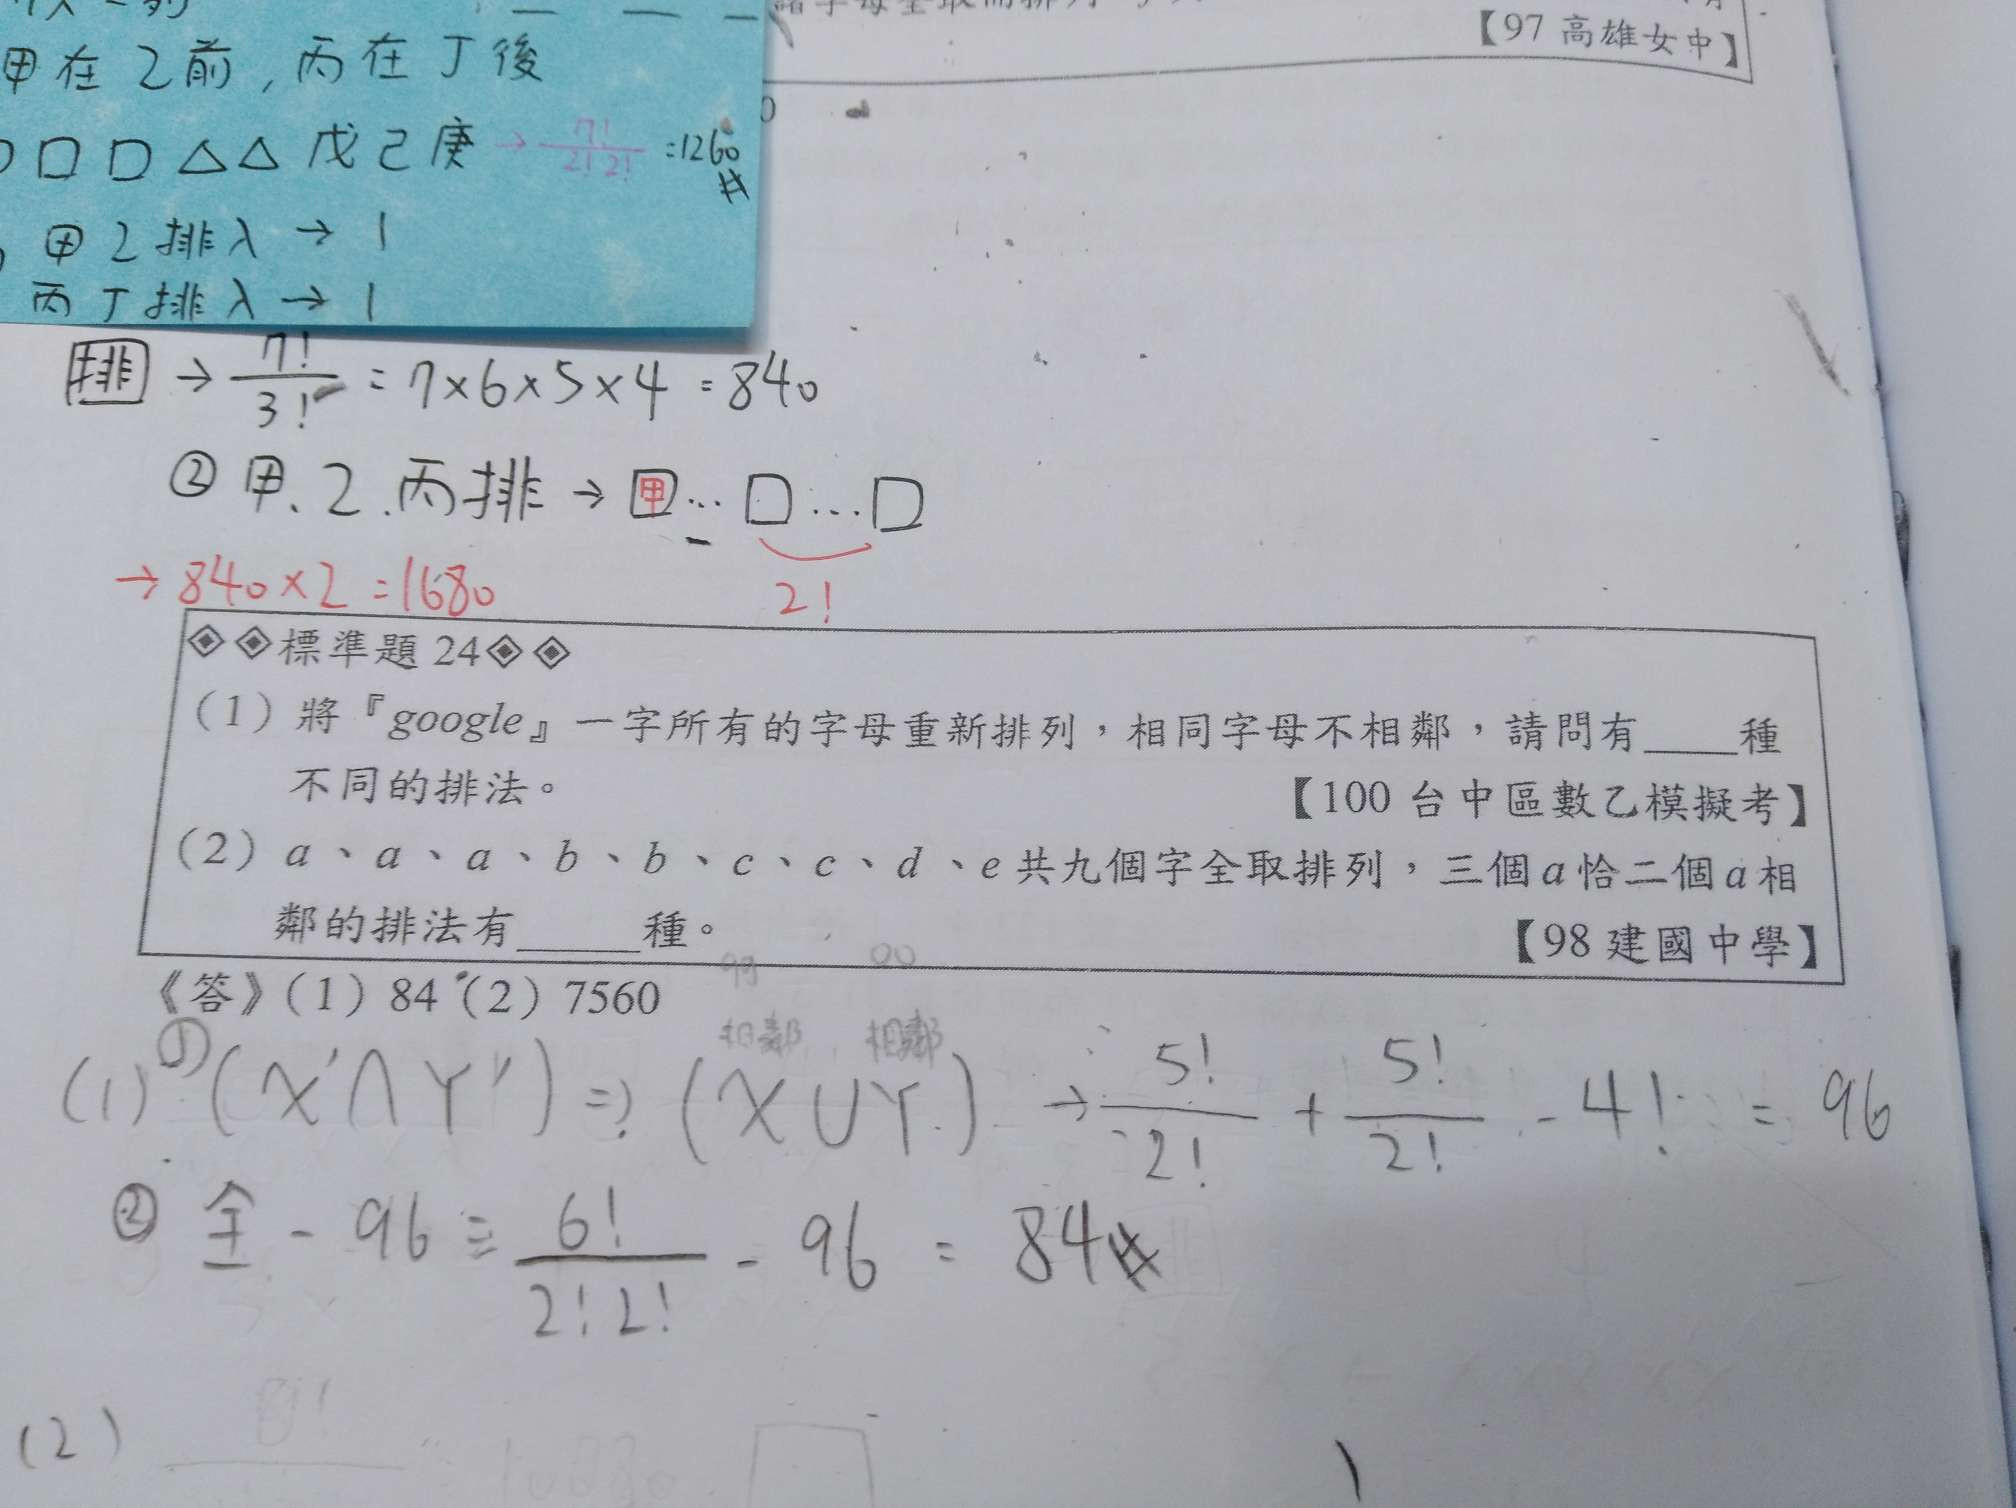 【97 高雄女中】
甲在乙前,丙在丁後
□ □ △ △ 戊己庚 → 7!/2!2! =1260
甲乙排入 → 1
丙丁排入 → 1
排 → 7!/3! = 7×6×5×4 = 840
② 甲、乙、丙排 → 甲…□…□
2!
→ 840×2 =1680
◈◈標準題 24◈◈
(1)將『google』一字所有的字母重新排列,相同字母不相鄰,請問有____種
不同的排法。 【100 台中區數乙模擬考】
(2)a、a、a、b、b、c、c、d、e共九個字全取排列,三個a恰二個a相
鄰的排法有_____種。 【98 建國中學】
《答》(1)84 (2)7560
gg oo
相鄰 相鄰
(1) ① (X'∩Y') => (X∪Y) → 5!/2! + 5!/2! - 4! = 96
② 全 - 96 = 6!/2!2! - 96 = 84
(2)